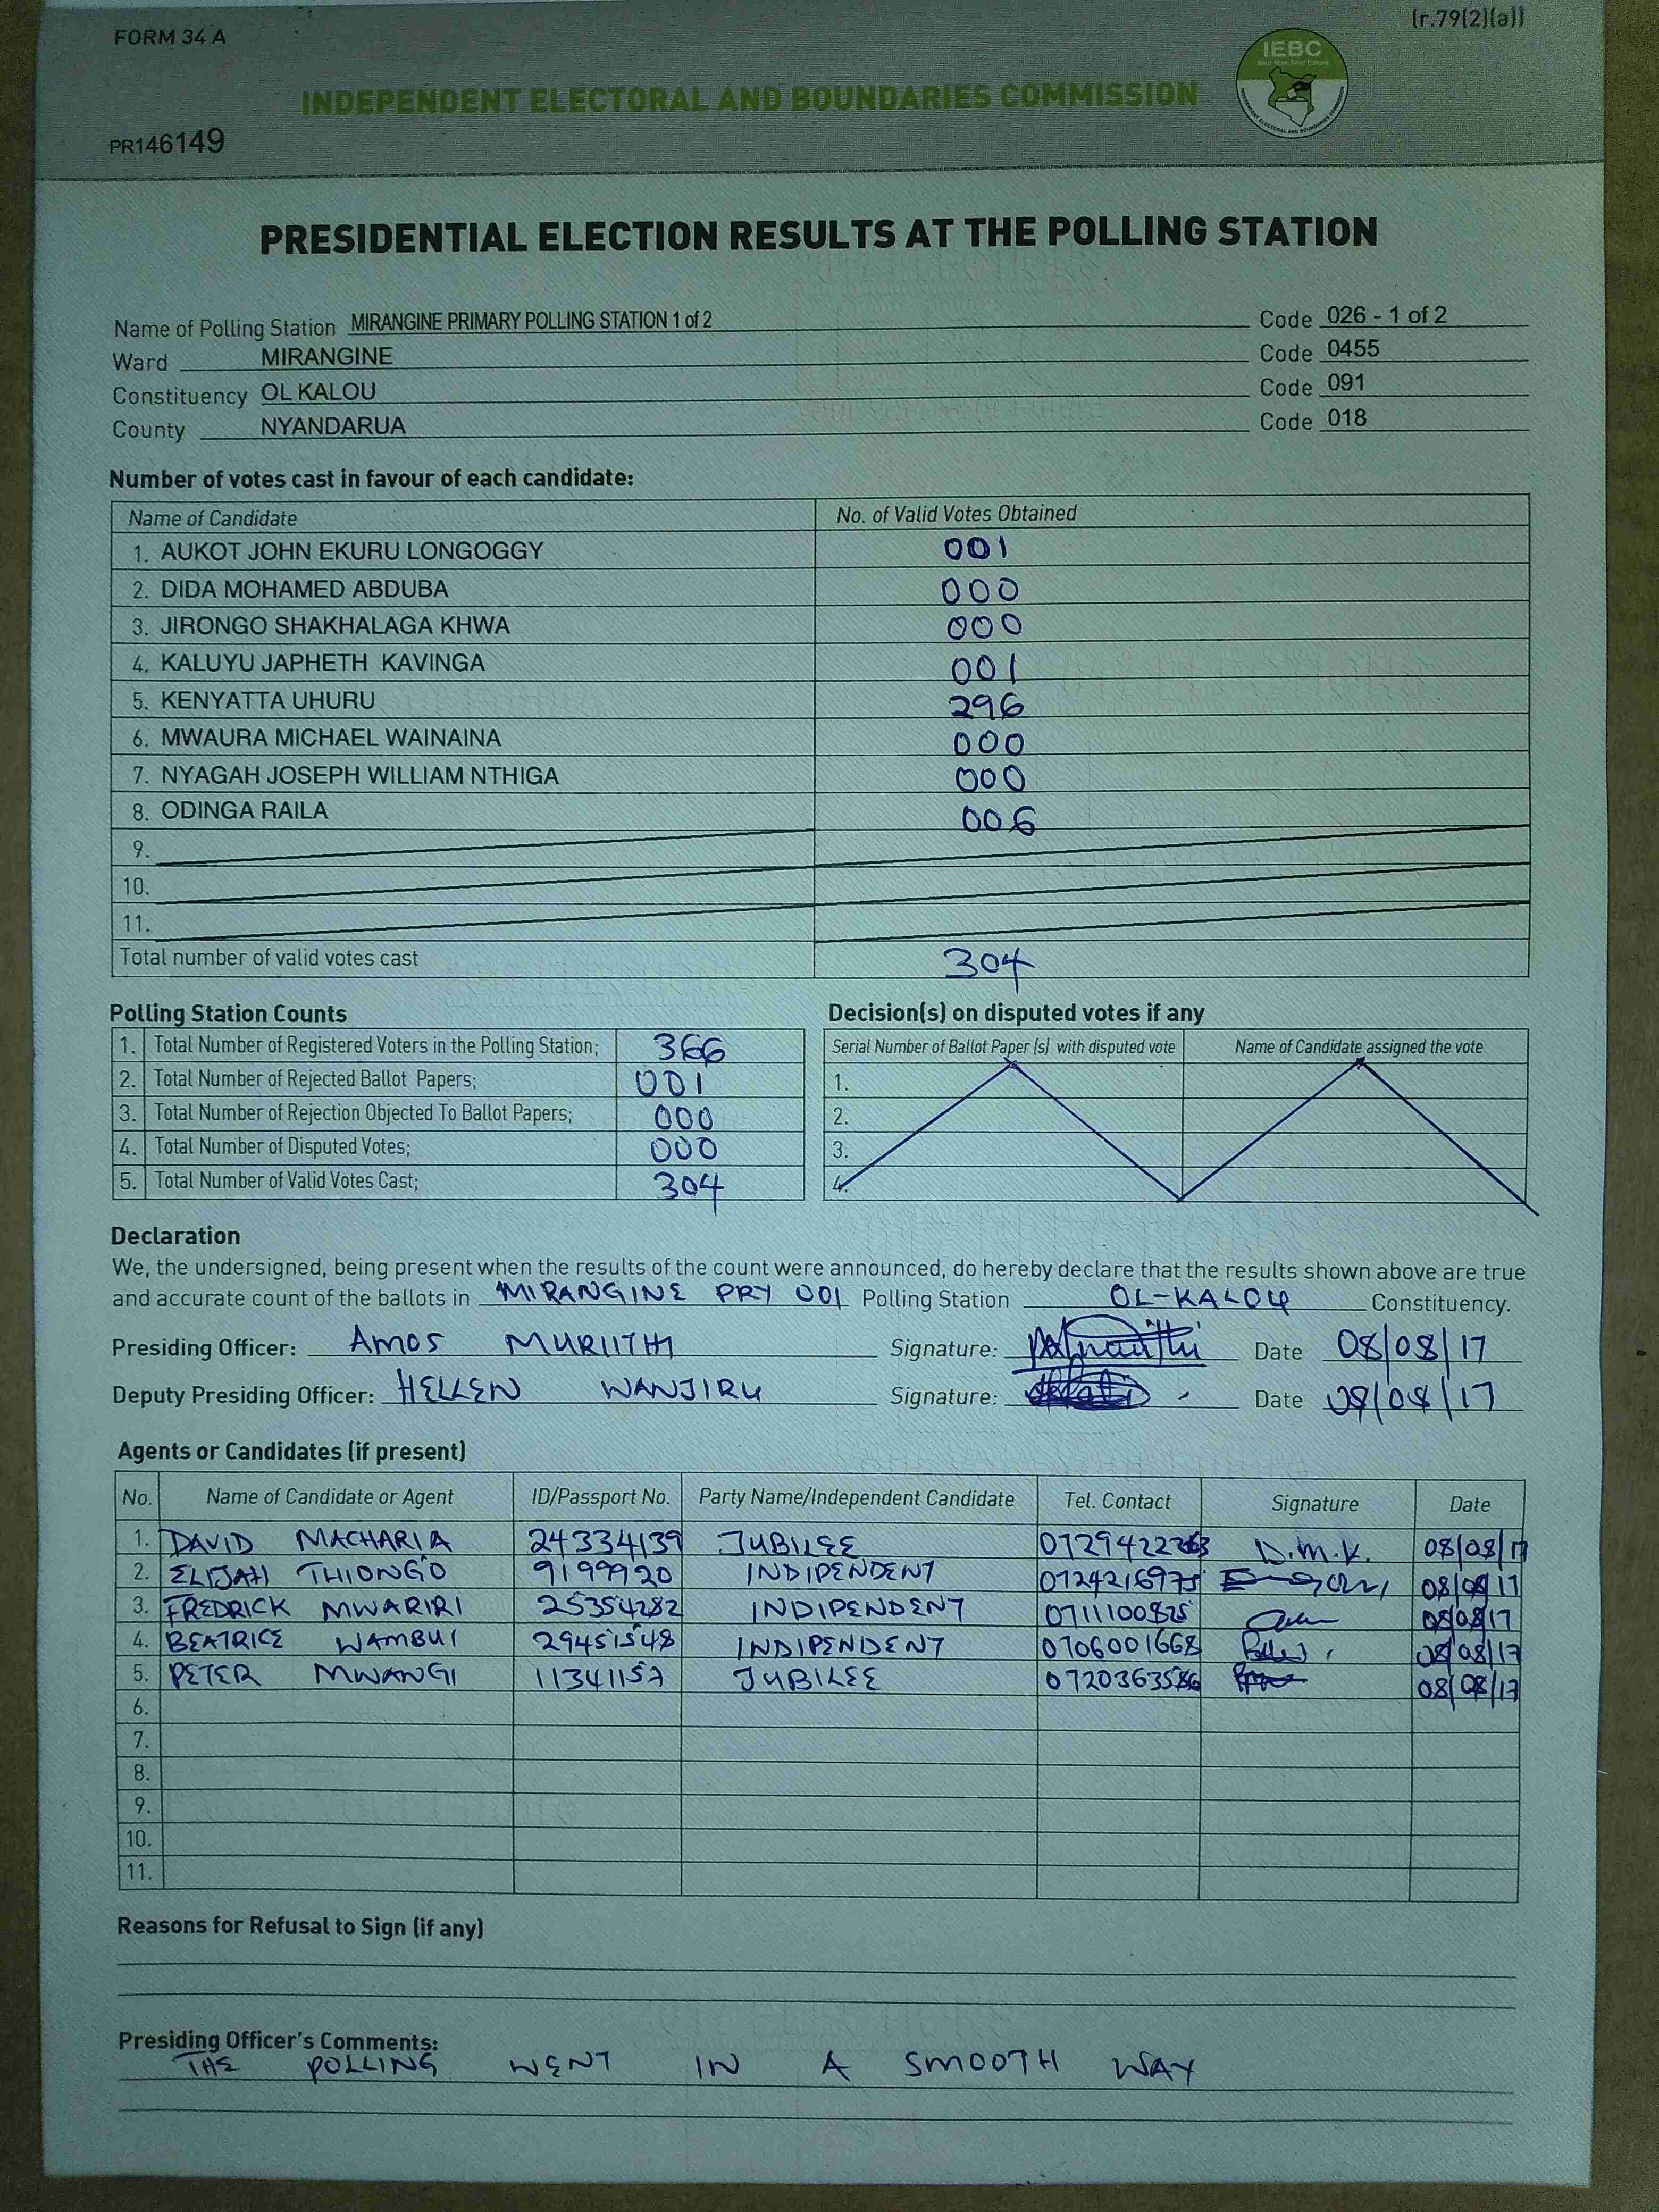 (r.79(2)(a))
FORM 34 A
IEBC
Your Vote, Your Future
INDEPENDENT ELECTORAL AND BOUNDARIES COMMISSION
PR146149
PRESIDENTIAL ELECTION RESULTS AT THE POLLING STATION
Name of Polling Station MIRANGINE PRIMARY POLLING STATION 1 of 2 Code 026 - 1 of 2
Ward MIRANGINE Code 0455
Constituency OL KALOU Code 091
County NYANDARUA Code 018
Number of votes cast in favour of each candidate:
Name of Candidate No. of Valid Votes Obtained
1. AUKOT JOHN EKURU LONGOGGY 001
2. DIDA MOHAMED ABDUBA 000
3. JIRONGO SHAKHALAGA KHWA 000
4. KALUYU JAPHETH KAVINGA 001
5. KENYATTA UHURU 296
6. MWAURA MICHAEL WAINAINA 000
7. NYAGAH JOSEPH WILLIAM NTHIGA 000
8. ODINGA RAILA 006
9.
10.
11.
Total number of valid votes cast 304
Polling Station Counts
1. Total Number of Registered Voters in the Polling Station; 366
2. Total Number of Rejected Ballot Papers; 001
3. Total Number of Rejection Objected To Ballot Papers; 000
4. Total Number of Disputed Votes; 000
5. Total Number of Valid Votes Cast; 304
Decision(s) on disputed votes if any
Serial Number of Ballot Paper (s) with disputed vote Name of Candidate assigned the vote
1.
2.
3.
4.
Declaration
We, the undersigned, being present when the results of the count were announced, do hereby declare that the results shown above are true
and accurate count of the ballots in MIRANGINE PRY 001 Polling Station OL-KALOU Constituency.
Presiding Officer: AMOS MURIITHI Signature: Date 08/08/17
Deputy Presiding Officer: HELLEN WANJIRU Signature: Date 08/08/17
Agents or Candidates (if present)
No. Name of Candidate or Agent ID/Passport No. Party Name/Independent Candidate Tel. Contact Signature Date
1. DAVID MACHARIA 24334139 JUBILEE D.M.K. 08/08/17
2. ELIJAH THIONGO 9199920 INDIPENDENT 0724216975 08/08/17
3. FREDRICK MWARIRI 25354282 INDIPENDENT 0711100825 08/08/17
4. BEATRICE WAMBUI 29451548 INDIPENDENT 0706001668 08/08/17
5. PETER MWANGI 11341157 JUBILEE 08/08/17
6.
7.
8.
9.
10.
11.
Reasons for Refusal to Sign (if any)
Presiding Officer's Comments:
THE POLLING WENT IN A SMOOTH WAY